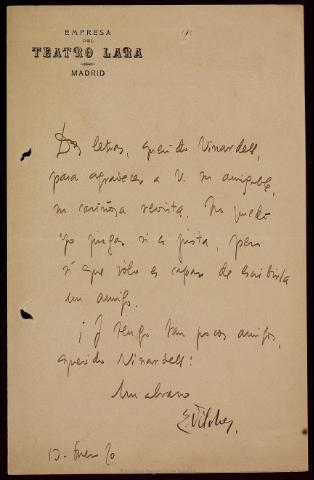 EMPRESA
DEL
TEATRO LARA
MADRID
Dos letras, querido Vinardell,
para agradecer a V. su amigable,
su cariñosa revista. No puedo
yo juzgar si es justa, pero
sí que sólo es capaz de escribirla
un amigo.
¡Y tengo tan pocos amigos,
querido Vinardell!
Un abrazo
E. Vilches.
Enero